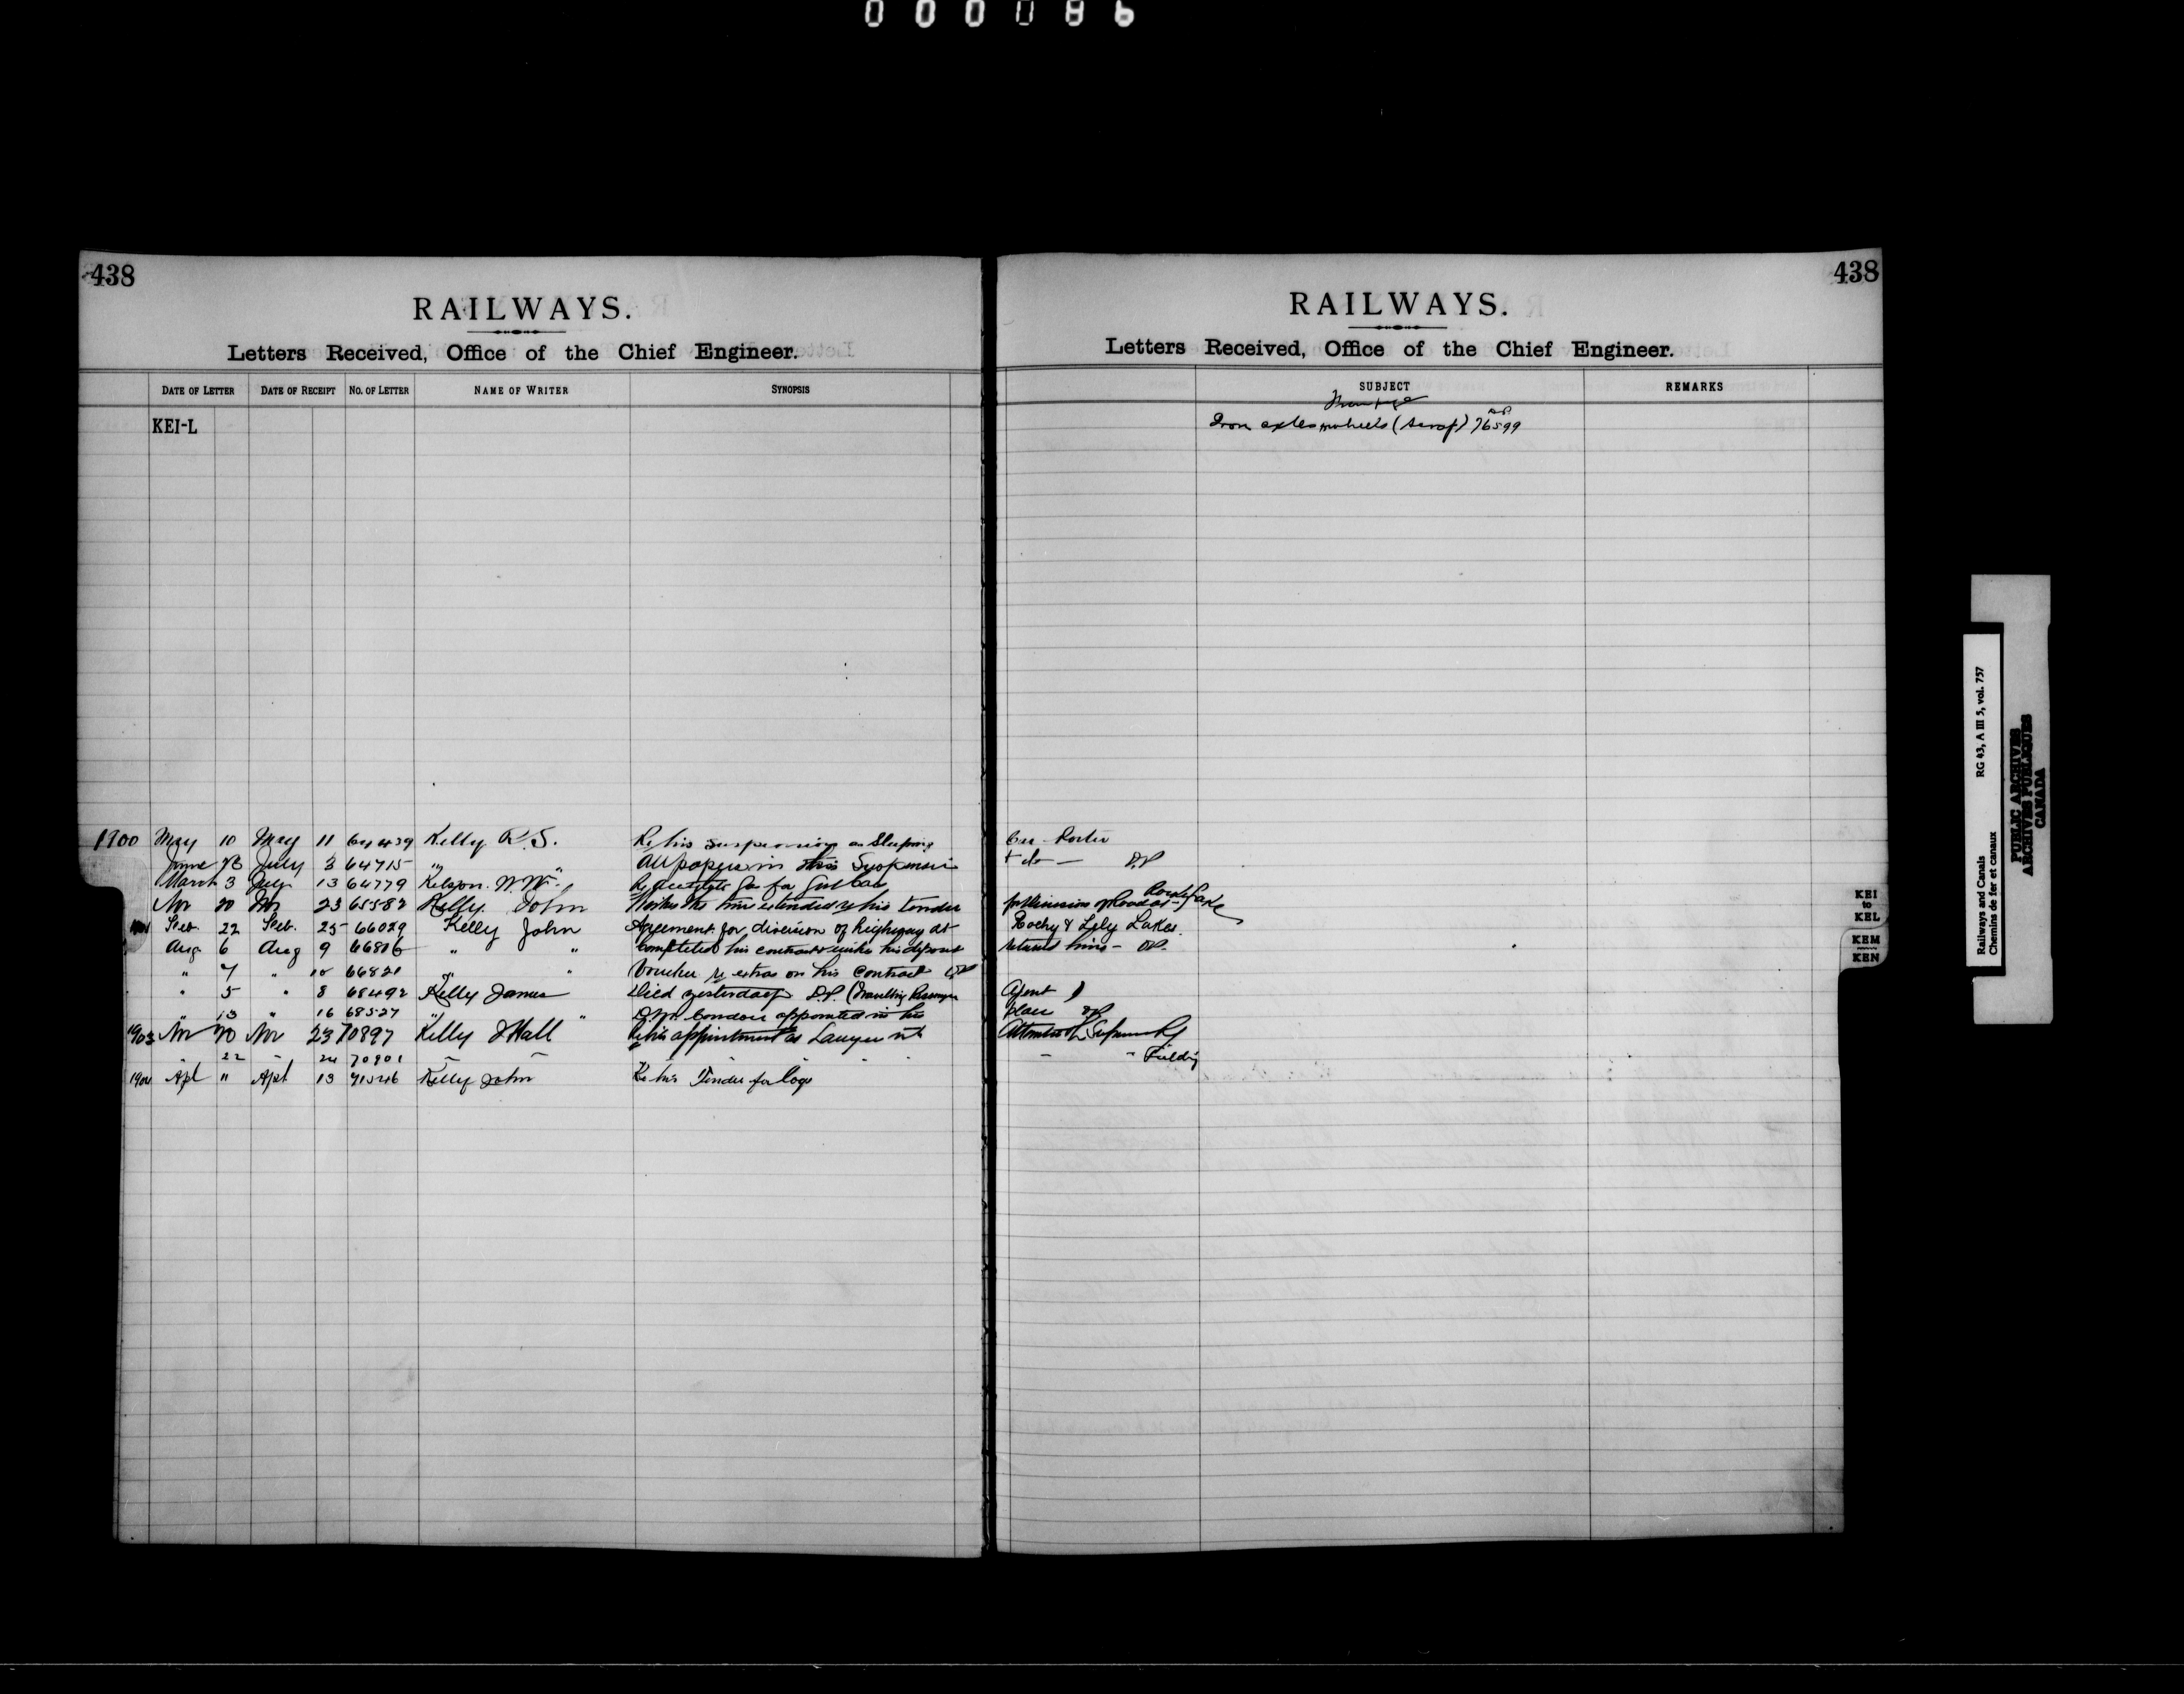 000086
438
RAILWAYS.
Letters Received, Office of the Chief Engineer.
DATE OF LETTER DATE OF RECEIPT NO. OF LETTER NAME OF WRITER SYNOPSIS
KEI-L
1900 May 10 May 11 64439 Kelly R.S. Re his suspension as Sleeping
June 28 July 3 64715 " " All papers in this Suspension
March 3 July 13 64779 Kelson W.W. Re Acetylene Gas for
Nov 20 Nov 23 65582 Kelly John Wishes the time extended re his tender
1901 Feb. 22 Feb. 25 66029 Kelly John Agreement for diversion of highway at
Aug 6 Aug 9 66806 " " Completed his contract wishes his deposit
" 7 " 10 66821 " " Voucher re extras on his contract DP
" 5 " 8 68492 Kelly James Died yesterday D.P. (Travelling Passenger
" 13 " 16 68527 " " appointed in his
1903 Nov 20 Nov 23 70897 Kelly J Hall Re his appointment as Lawyer
" 22 " 24 70901 " " " " "
1904 Apl " Apl 13 71546 Kelly John Re his Tender for
438
RAILWAYS.
Letters Received, Office of the Chief Engineer.
SUBJECT REMARKS
Iron axles wheels (Scrap) 76599
Car Porter
+ do — DP
for diversion of Road at Rocky Lake
Rocky & Lily Lakes.
returned him - DP.
Agent )
place DP
" " Fielding
KEI
to
KEL
KEM
KEN
Railways and Canals RG 43, A III 5, vol. 757
Chemins de fer et canaux
PUBLIC ARCHIVES
ARCHIVES PUBLIQUES
CANADA